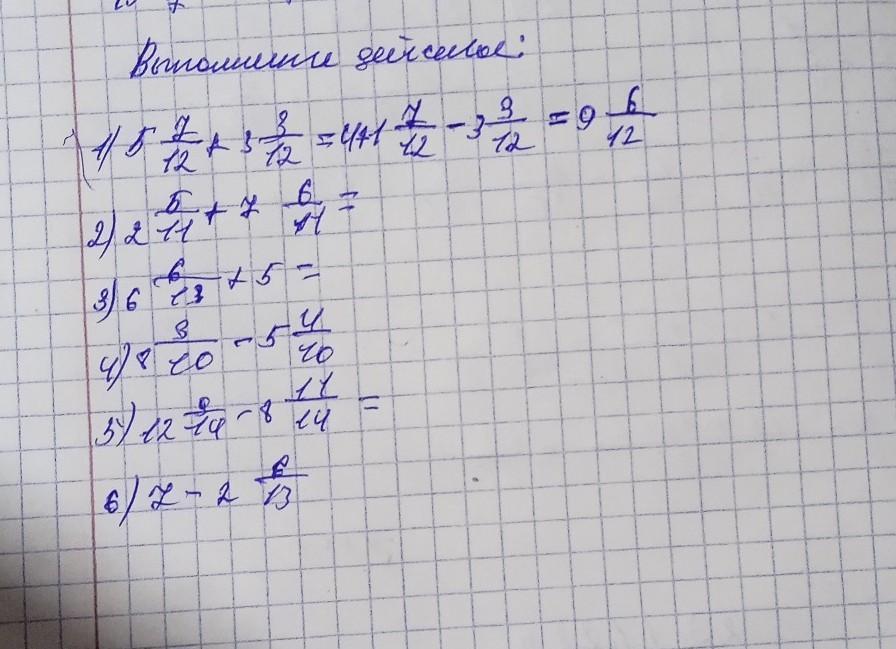 Выполните действие:
1) 5 7/12 + 3 3/12 = 4+1 7/12 - 3 3/12 = 9 6/12
2) 2 5/11 + 7 6/11 =
3) 6 6/13 + 5 =
4) 8 3/10 - 5 4/10
5) 12 9/14 - 8 11/14 =
6) 7 - 2 6/13